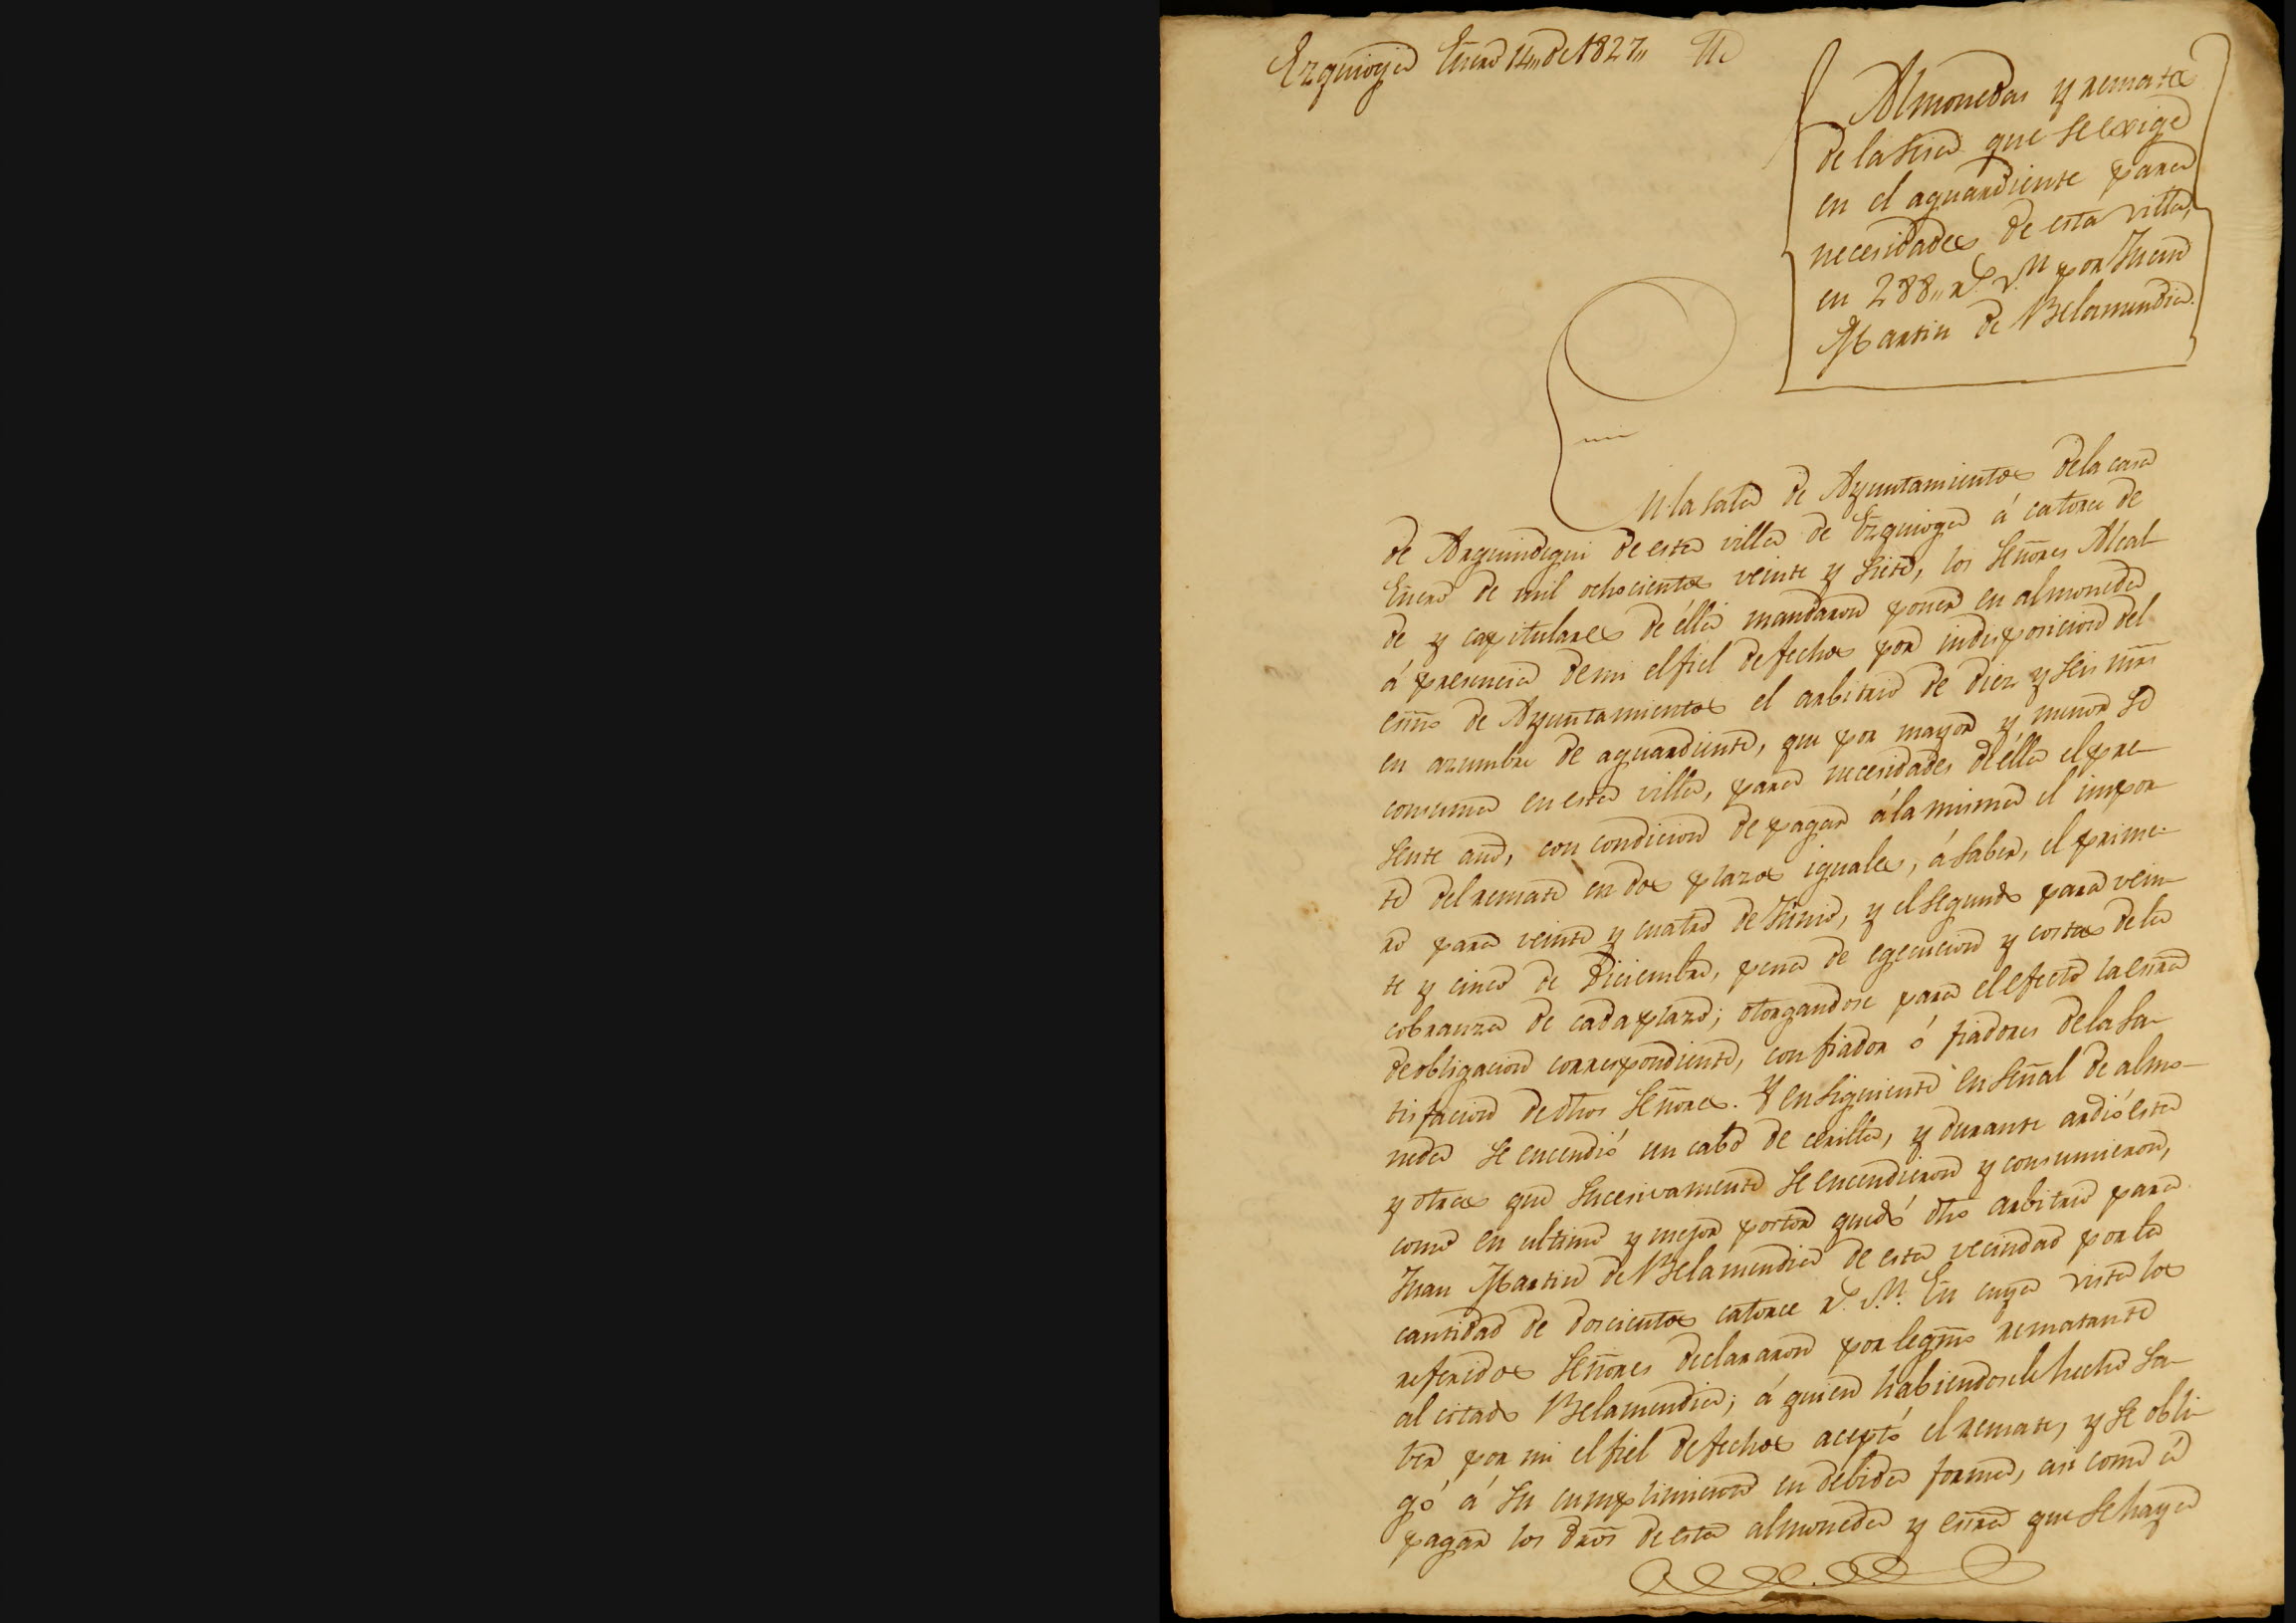 Ezquioga Enero 14,, de 1827,,
Almoneda y remate
de la sisa que se exige
en el aguardiente para
necesidades de esta villa,
en 288,, rs. vn por Juan
Martin de Belamendia.
En la sala de Ayuntamientos de la casa
de Arguindegui de esta villa de Ezquioga á catorce de
Enero de mil ochocientos veinte y siete, los Señores Alcal-
de y capitulares de élla mandaron poner en almoneda
á presencia de mi el fiel de fechos por indisposicion del
esnno de Ayuntamientos el arbitrio de diez y seis mrs
en azumbre de aguardiente, que por mayor y menor se
consuma en esta villa, para necesidades de élla el pre-
sente año, con condicion de pagar á la misma el impor-
te del remate en dos plazos iguales, á saber, el prime-
ro para veinte y cuatro de Junio, y el segundo para vein-
te y cinco de Diciembre, pena de egecucion y costas de la
cobranza de cada plazo; otorgandose para el efecto la esnra
de obligacion correspondiente, con fiador ó fiadores de la sa-
tisfacion de dhos Señores. Y en siguiente en señal de almo-
neda se encendió un cabo de cerilla, y durante ardió esta
y otras que sucesivamente se encendieron y consumieron,
como en ultimo y mejor postor quedó dho arbitrio para
Juan Martin de Belamendia de esta vecindad por la
cantidad de doscientos catorce rs. vn. En cuya vista los
referidos Señores declararon por legmo rematante
al citado Belamendia; á quien habiendosele hecho sa-
ber por mi el fiel de fechos aceptó el remate, y se obli-
gó á su cumplimiento en debida forma, asi como á
pagar los dros de esta almoneda y esnra que se haya